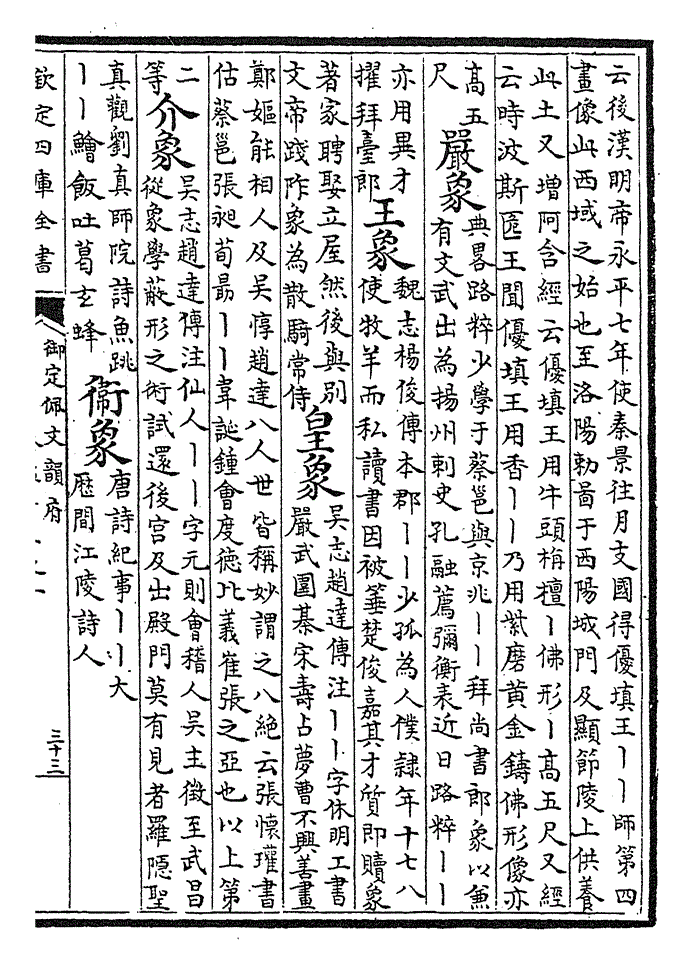 云後漢明帝永平七年使秦景往月支國得優填王丨丨師第四
畫像此西域之始也至洛陽勅啚于西陽城門及顯節陵上供養
此土又增阿含經云優填王用牛頭栴檀丨佛形丨高五尺又經
云時波斯匿王聞優填王用香丨丨乃用紫磨黄金鑄佛形像亦
高五
尺
嚴象
典畧路粹少學于蔡邕與京兆丨丨拜尚書郎象以兼
有文武出為揚州刺史孔融薦彌衡表近日路粹丨丨
亦用異才
擢拜臺郎
王象
魏志楊俊傳本郡丨丨少孤為人僕隸年十七八
使牧羊而私讀書因被箠楚俊嘉其才質即贖象
著家聘娶立屋然後與别
文帝踐阼象為散騎常侍
皇象
吴志趙達傳注丨丨字休明工書
嚴武圍棊宋壽占夢曹不興善畫
鄭嫗能相人及吴惇趙達八人世皆稱妙謂之八絶云張懷瓘書
估蔡邕張昶荀勗丨丨韋誕鍾會度德比義崔張之亞也以上第
二
等
介象
吴志趙達傳注仙人丨丨字元則會稽人吴主徵至武昌
從象學蔽形之術試還後宫及出殿門莫有見者羅隱聖
真觀劉真師院詩魚跳
丨丨鱠飯吐葛玄蜂
衞象
唐詩紀事丨丨大
歷間江陵詩人
欽定四庫全書
御定佩文韻府
三十三